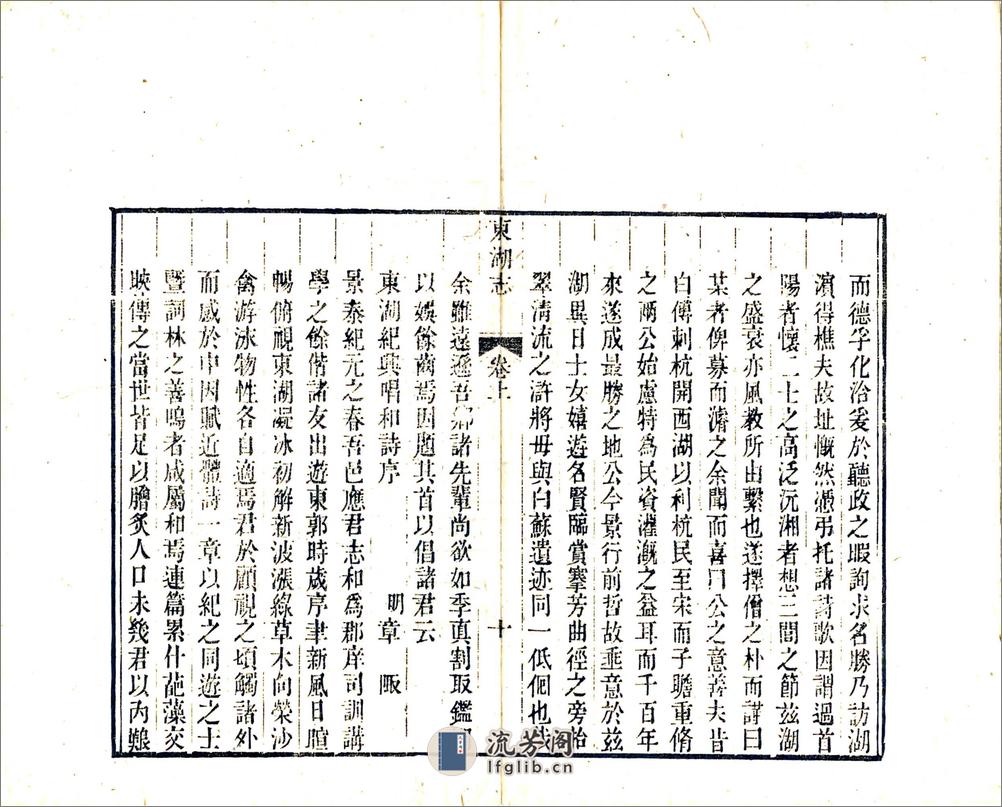 而德孚化洽爰於聽政之暇詢求名勝乃訪湖
濱得樵夫故址慨然憑弔托諸詩歌因謂過首
陽者懷二士之高泛沅湘者想三閭之節茲湖
之盛衰亦風教所由繫也遂擇僧之朴而謹曰
某者俾募而濬之余聞而喜曰公之意善夫昔
白傅刺杭開西湖以利杭民至宋而子瞻重脩
之兩公始慮特為民資灌溉之益耳而千百年
來遂成最勝之地公今景行前哲故垂意於茲
湖異日士女嬉遊名賢臨賞搴芳曲徑之旁拾
翠清流之滸將毋與白蘇遺迹同一低佪也哉
東湖志
卷上
十
余雖遠遯吾鄉諸先輩尚欲如季真割取鑑
以娛餘齒焉因題其首以倡諸君云
東湖紀興唱和詩序
明章 陬
景泰紀元之春吾邑應君志和為郡庠司訓講
學之餘偕諸友出遊東郭時歲序聿新風日暄
暢俯視東湖凝冰初解新波漲綠草木向榮沙
禽游泳物性各自適焉君於顧視之頃觸諸外
而感於中因賦近體詩一章以紀之同遊之士
暨詞林之善鳴者咸屬和焉連篇累什葩藻交
映傳之當世皆足以膾炙人口未幾君以內艱
流芳阁
lfglib.cn